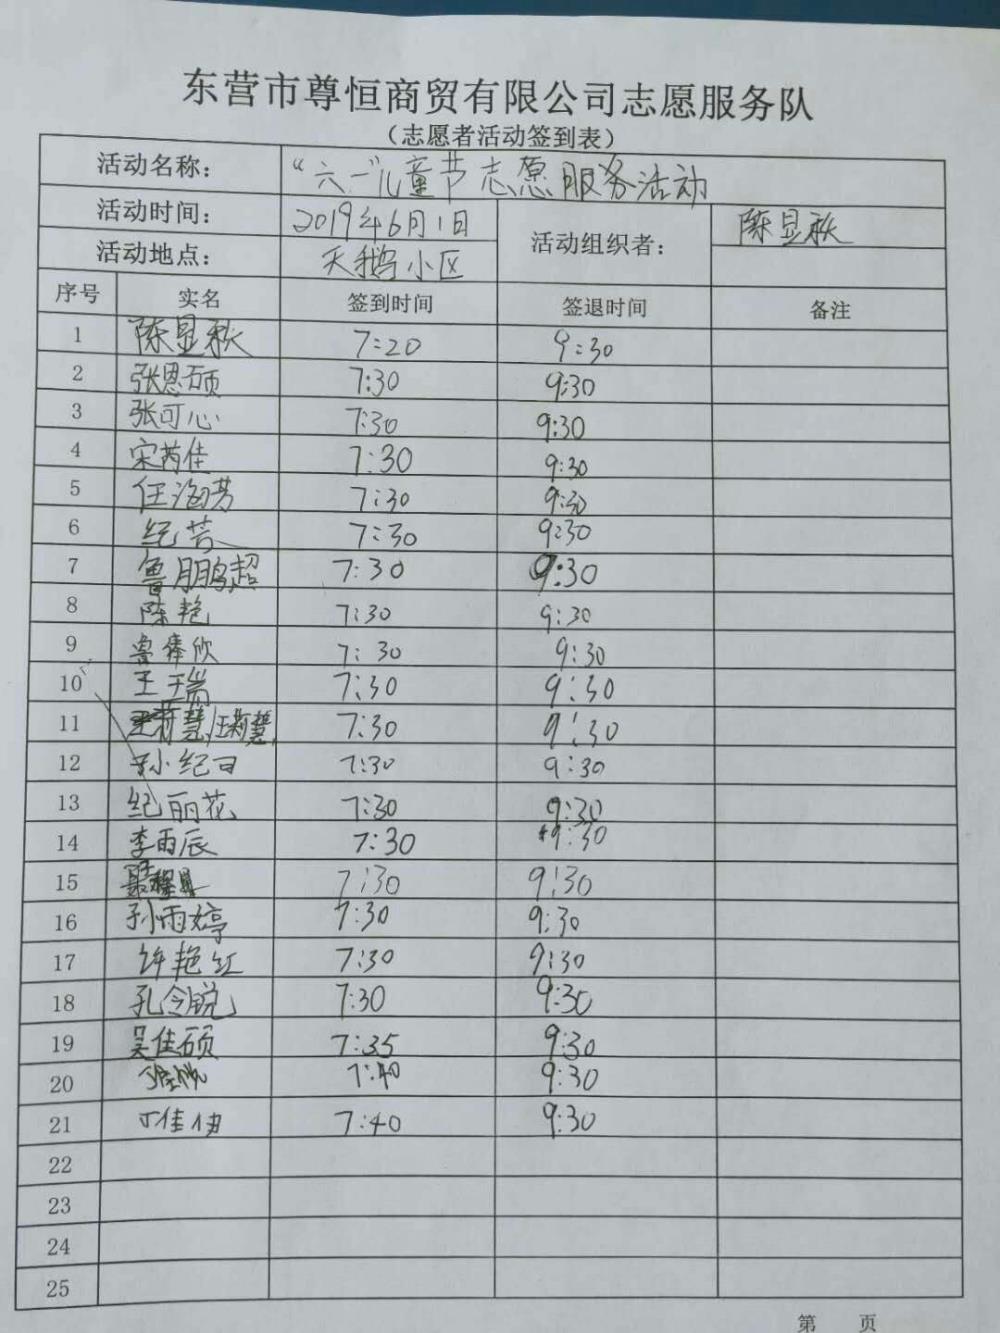 东营市尊恒商贸有限公司志愿服务队
（志愿者活动签到表）
活动名称： “六一”儿童节志愿服务活动
活动时间： 2019年6月1日 活动组织者： 陈显秋
活动地点： 天鹅小区
序号 实名 签到时间 签退时间 备注
1 陈显秋 7:20 9:30
2 张恩硕 7:30 9:30
3 张可心 7:30 9:30
4 宋芮佳 7:30 9:30
5 任海芳 7:30 9:30
6 纪芸 7:30 9:30
7 鲁朋鹏超 7:30 9:30
8 陈艳 7:30 9:30
9 鲁俸欣 7:30 9:30
10 王瑞 7:30 9:30
11 汪莉慧 7:30 9:30
12 孙纪日 7:30 9:30
13 纪丽花 7:30 9:30
14 李雨辰 7:30 9:30
15 7:30 9:30
16 孙雨婷 7:30 9:30
17 许艳红 7:30 9:30
18 孔令锐 7:30 9:30
19 吴佳硕 7:35 9:30
20 7:40 9:30
21 丁佳伊 7:40 9:30
22
23
24
25
第 页